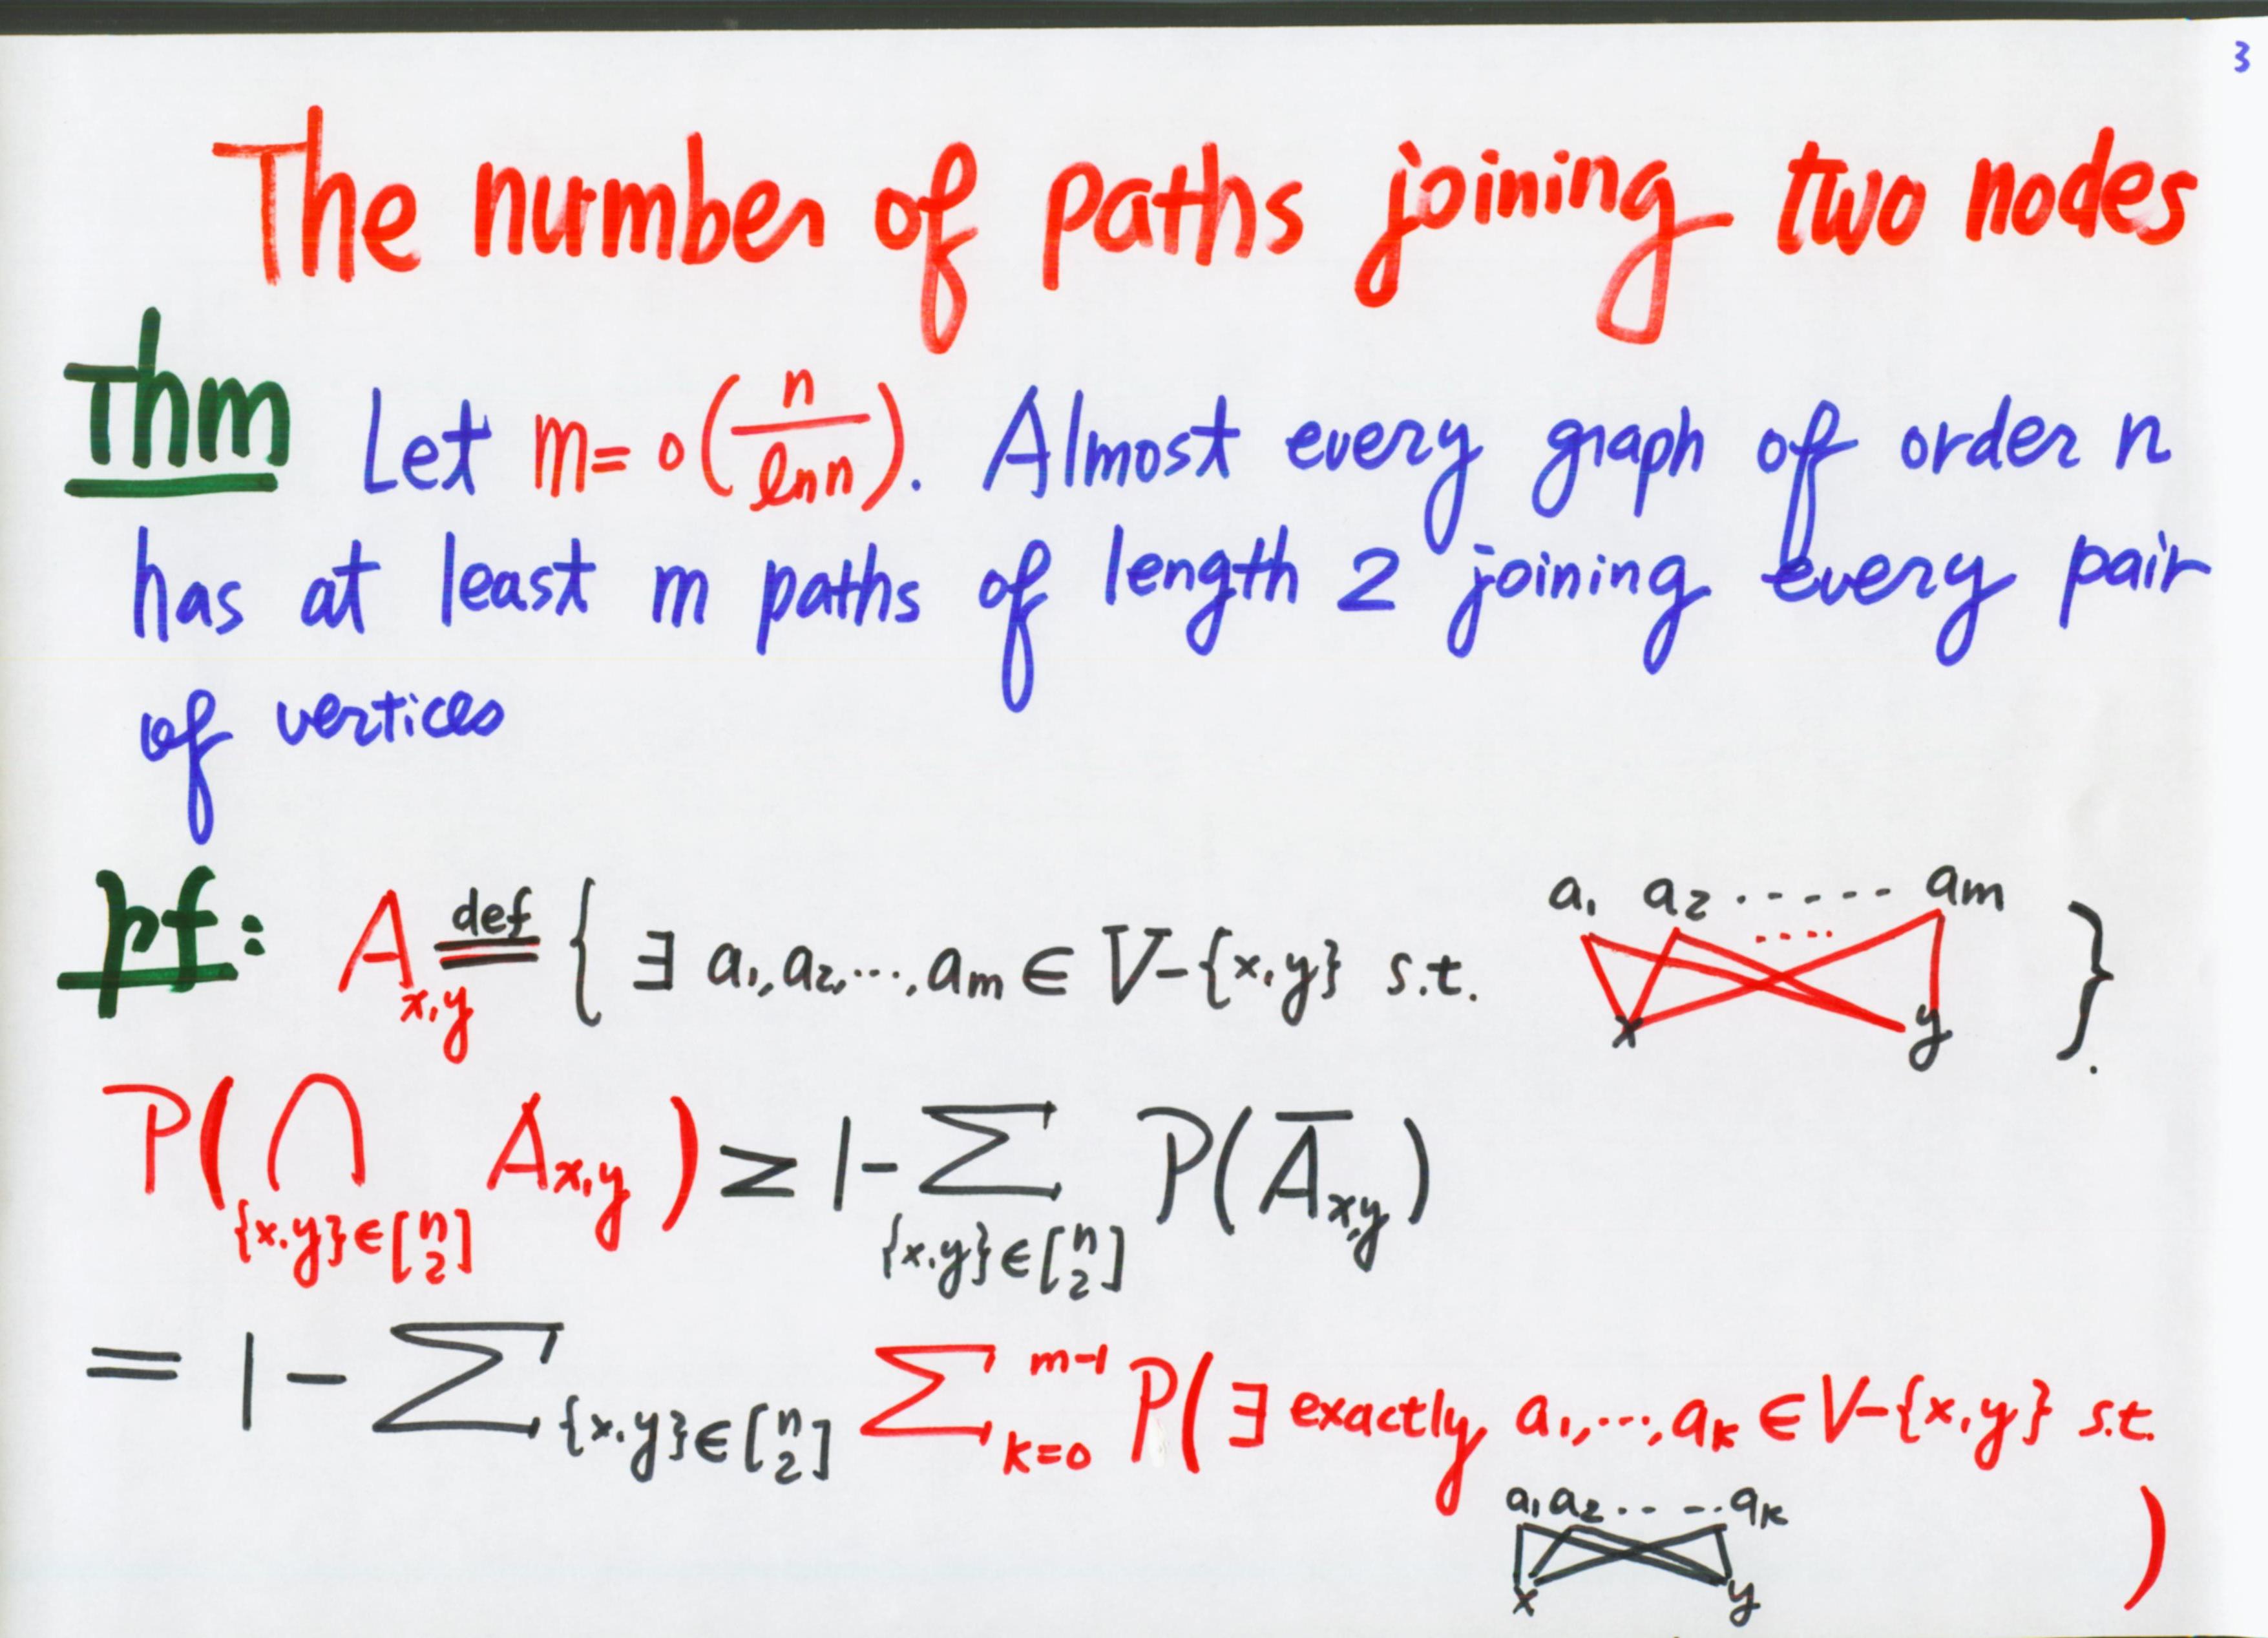 3
The number of paths joining two nodes
Thm Let m = o(n/ln n). Almost every graph of order n
has at least m paths of length 2 joining every pair
of vertices
a₁ a₂ ...... am
pf: A_{x,y} =def { ∃ a₁, a₂, ..., am ∈ V-{x,y} s.t. }.
x y
P( ∩_{{x,y}∈[n 2]} A_{x,y} ) ≥ 1 - Σ_{{x,y}∈[n 2]} P(Ā_{x,y})
= 1 - Σ_{{x,y}∈[n 2]} Σ_{k=0}^{m-1} P( ∃ exactly a₁, ..., ak ∈ V-{x,y} s.t.
a₁ a₂ ..... ak )
x y